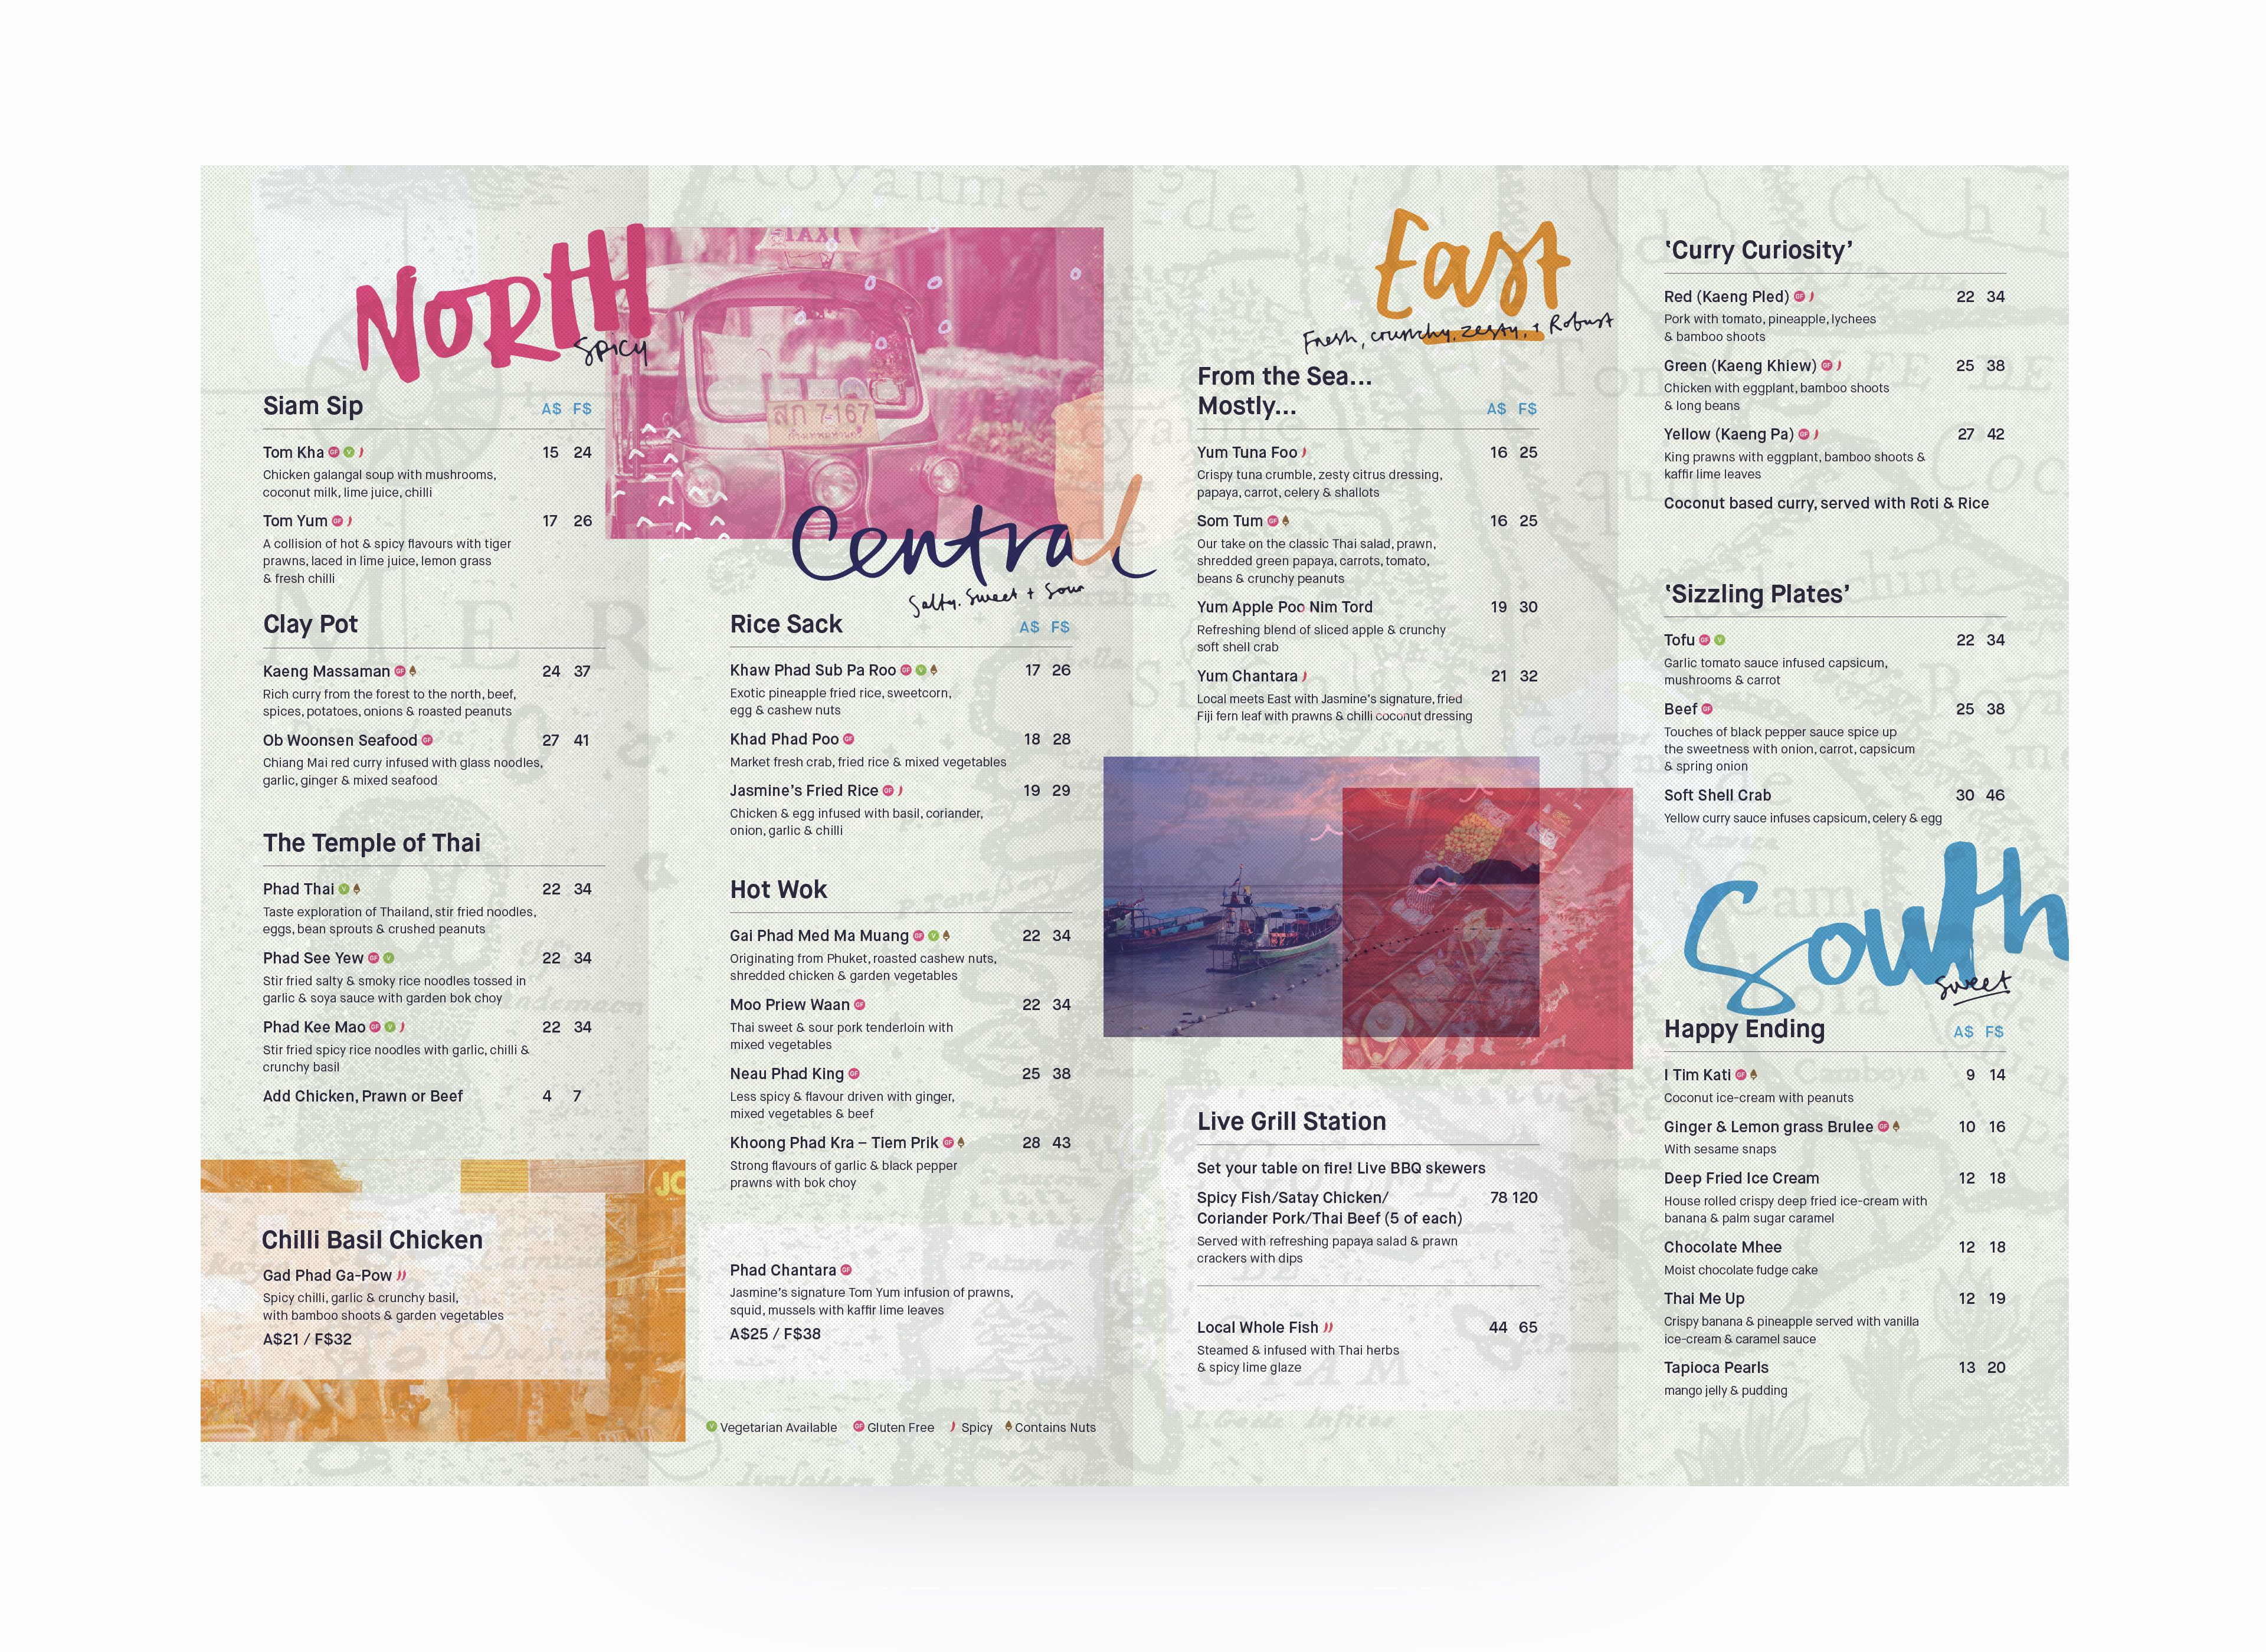 NORTH
SPICY
Siam Sip A$ F$
Tom Kha GF V 15 24
Chicken galangal soup with mushrooms,
coconut milk, lime juice, chilli
Tom Yum GF 17 26
A collision of hot & spicy flavours with tiger
prawns, laced in lime juice, lemon grass
& fresh chilli
Clay Pot
Kaeng Massaman GF 24 37
Rich curry from the forest to the north, beef,
spices, potatoes, onions & roasted peanuts
Ob Woonsen Seafood GF 27 41
Chiang Mai red curry infused with glass noodles,
garlic, ginger & mixed seafood
The Temple of Thai
Phad Thai V 22 34
Taste exploration of Thailand, stir fried noodles,
eggs, bean sprouts & crushed peanuts
Phad See Yew GF V 22 34
Stir fried salty & smoky rice noodles tossed in
garlic & soya sauce with garden bok choy
Phad Kee Mao GF V 22 34
Stir fried spicy rice noodles with garlic, chilli &
crunchy basil
Add Chicken, Prawn or Beef 4 7
JO
Chilli Basil Chicken
Gad Phad Ga-Pow
Spicy chilli, garlic & crunchy basil,
with bamboo shoots & garden vegetables
A$21 / F$32
TAXI
สก 7167
กรุงเทพมหานคร
Central
Salty. Sweet + Sour
Rice Sack A$ F$
Khaw Phad Sub Pa Roo GF V 17 26
Exotic pineapple fried rice, sweetcorn,
egg & cashew nuts
Khad Phad Poo GF 18 28
Market fresh crab, fried rice & mixed vegetables
Jasmine's Fried Rice GF 19 29
Chicken & egg infused with basil, coriander,
onion, garlic & chilli
Hot Wok
Gai Phad Med Ma Muang GF V 22 34
Originating from Phuket, roasted cashew nuts,
shredded chicken & garden vegetables
Moo Priew Waan GF 22 34
Thai sweet & sour pork tenderloin with
mixed vegetables
Neau Phad King GF 25 38
Less spicy & flavour driven with ginger,
mixed vegetables & beef
Khoong Phad Kra – Tiem Prik GF 28 43
Strong flavours of garlic & black pepper
prawns with bok choy
Phad Chantara GF
Jasmine's signature Tom Yum infusion of prawns,
squid, mussels with kaffir lime leaves
A$25 / F$38
V Vegetarian Available GF Gluten Free Spicy Contains Nuts
East
Fresh, crunchy, zesty, + Robust
From the Sea...
Mostly... A$ F$
Yum Tuna Foo 16 25
Crispy tuna crumble, zesty citrus dressing,
papaya, carrot, celery & shallots
Som Tum GF 16 25
Our take on the classic Thai salad, prawn,
shredded green papaya, carrots, tomato,
beans & crunchy peanuts
Yum Apple Poo Nim Tord 19 30
Refreshing blend of sliced apple & crunchy
soft shell crab
Yum Chantara 21 32
Local meets East with Jasmine's signature, fried
Fiji fern leaf with prawns & chilli coconut dressing
Live Grill Station
Set your table on fire! Live BBQ skewers
Spicy Fish/Satay Chicken/ 78 120
Coriander Pork/Thai Beef (5 of each)
Served with refreshing papaya salad & prawn
crackers with dips
Local Whole Fish 44 65
Steamed & infused with Thai herbs
& spicy lime glaze
'Curry Curiosity'
Red (Kaeng Pled) GF 22 34
Pork with tomato, pineapple, lychees
& bamboo shoots
Green (Kaeng Khiew) GF 25 38
Chicken with eggplant, bamboo shoots
& long beans
Yellow (Kaeng Pa) GF 27 42
King prawns with eggplant, bamboo shoots &
kaffir lime leaves
Coconut based curry, served with Roti & Rice
'Sizzling Plates'
Tofu GF V 22 34
Garlic tomato sauce infused capsicum,
mushrooms & carrot
Beef GF 25 38
Touches of black pepper sauce spice up
the sweetness with onion, carrot, capsicum
& spring onion
Soft Shell Crab 30 46
Yellow curry sauce infuses capsicum, celery & egg
South
Sweet
Happy Ending A$ F$
I Tim Kati GF 9 14
Coconut ice-cream with peanuts
Ginger & Lemon grass Brulee GF 10 16
With sesame snaps
Deep Fried Ice Cream 12 18
House rolled crispy deep fried ice-cream with
banana & palm sugar caramel
Chocolate Mhee 12 18
Moist chocolate fudge cake
Thai Me Up 12 19
Crispy banana & pineapple served with vanilla
ice-cream & caramel sauce
Tapioca Pearls 13 20
mango jelly & pudding